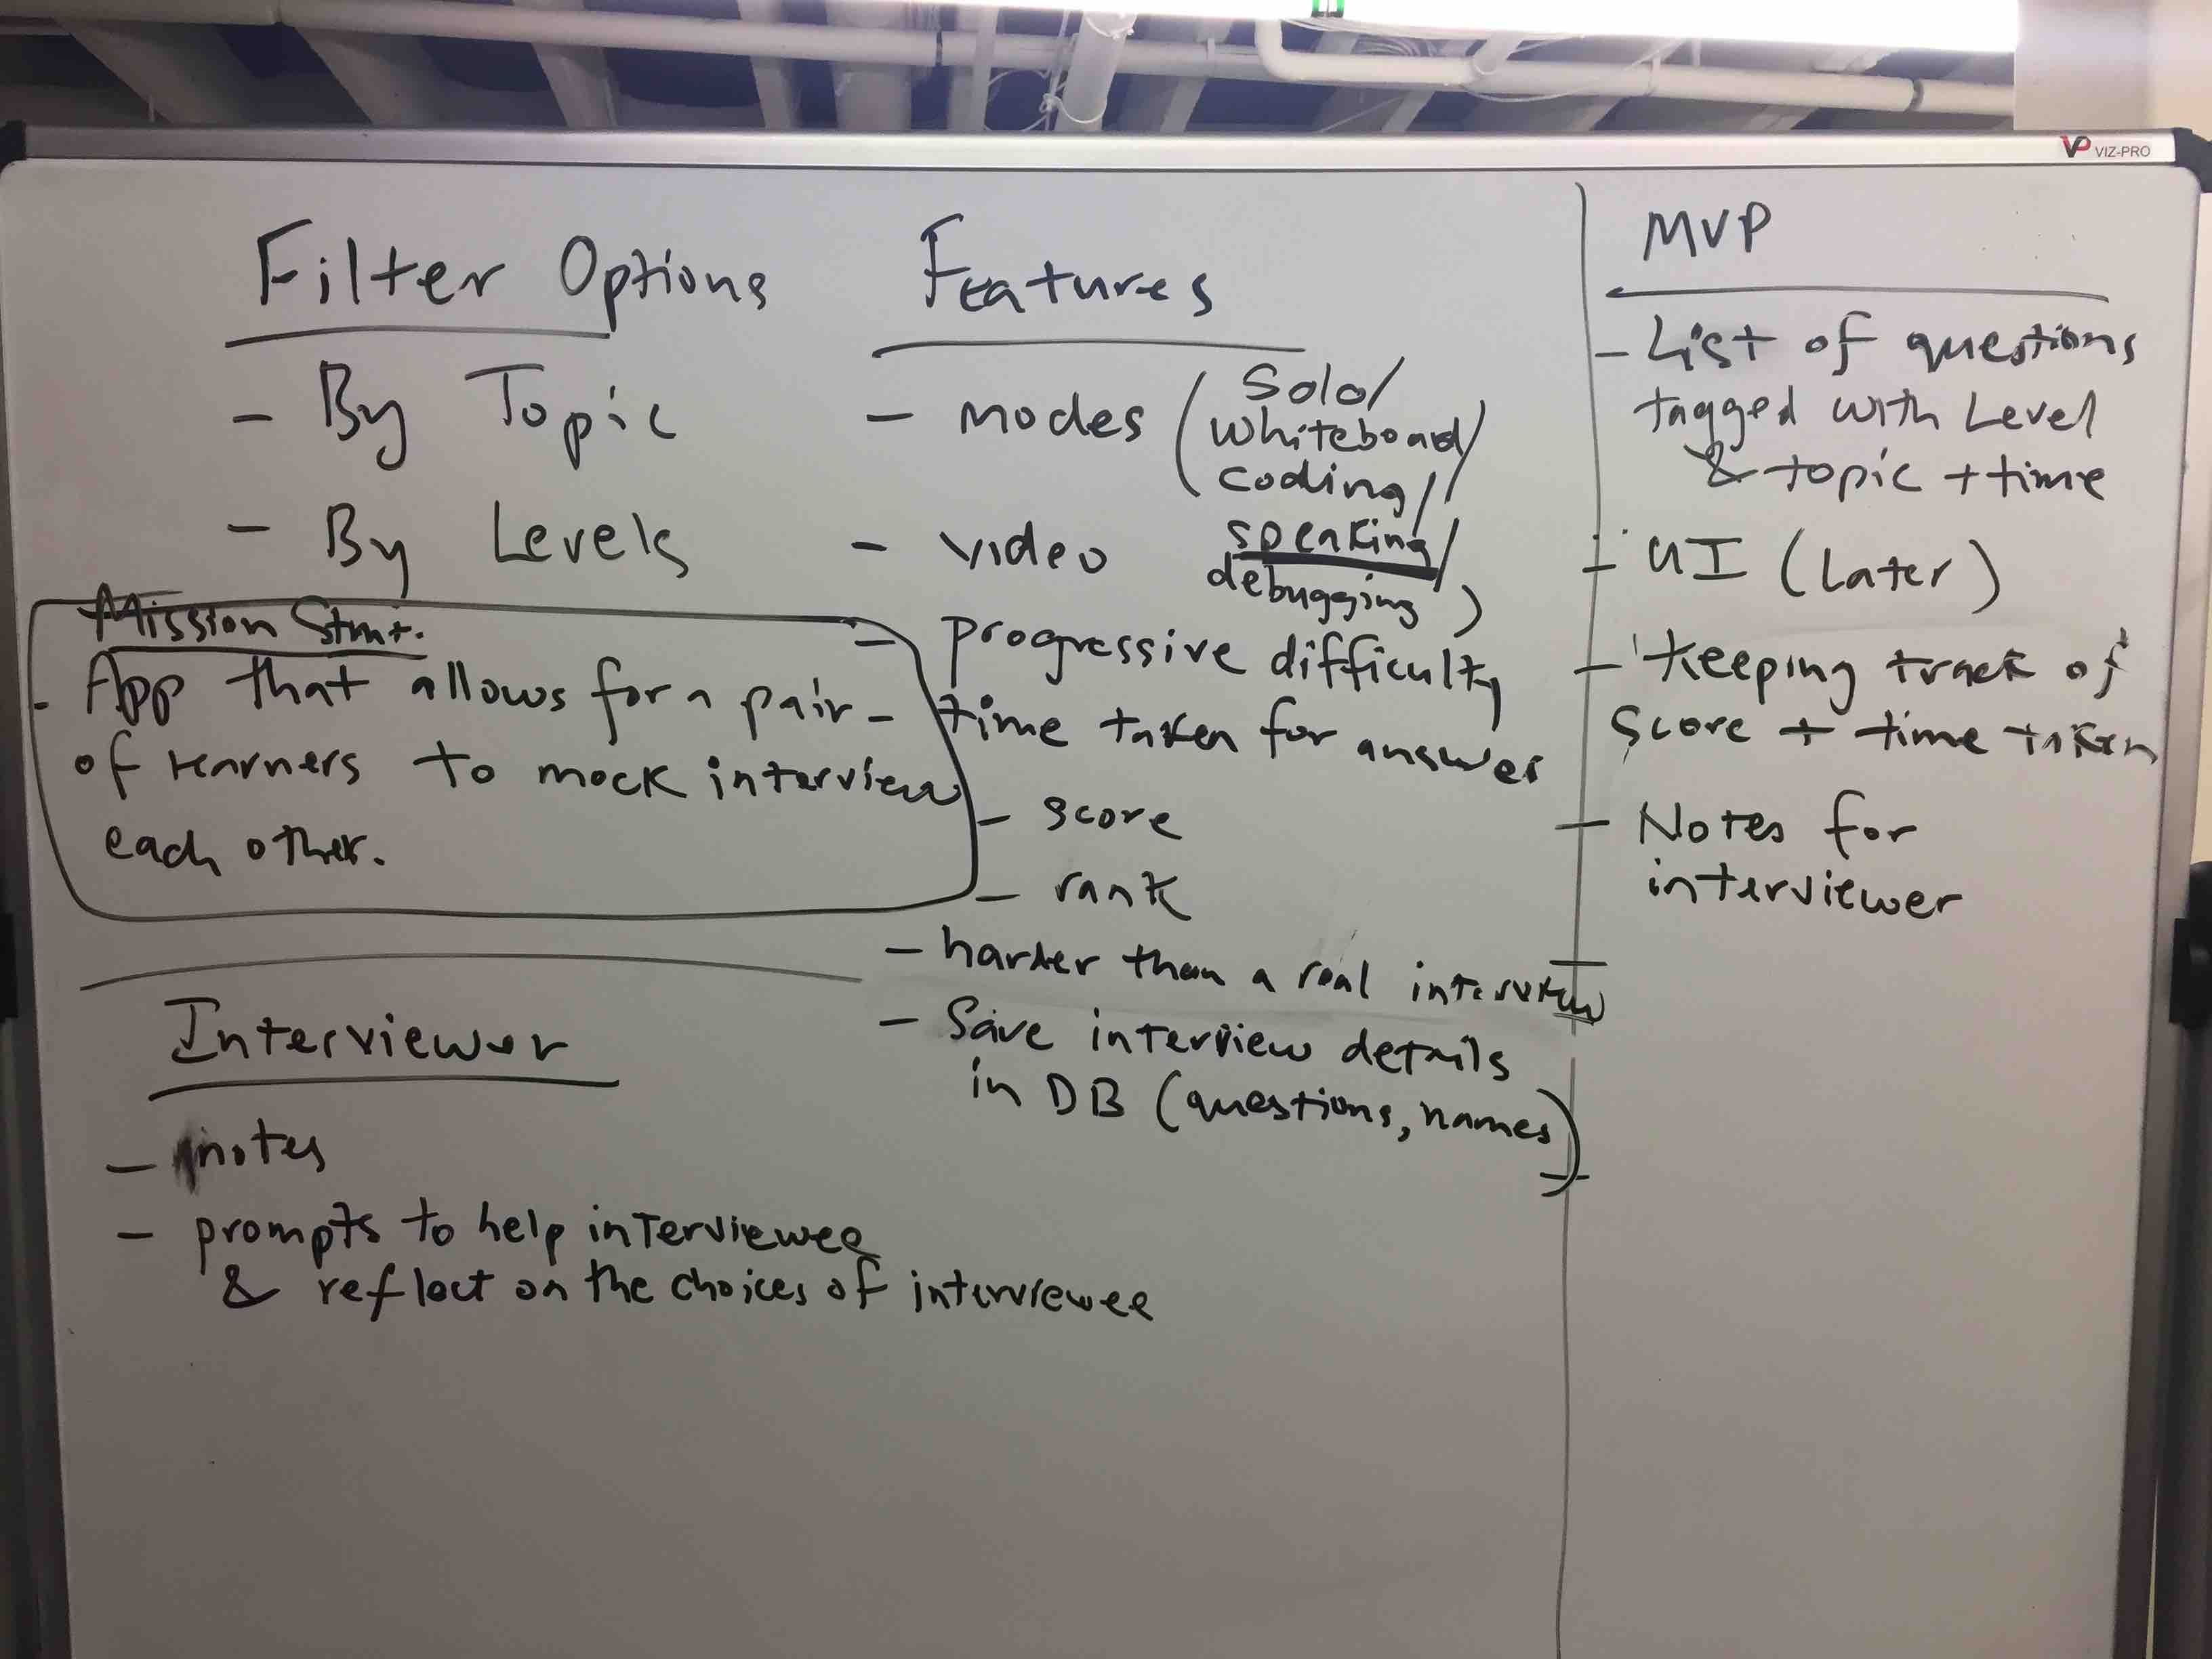 VP VIZ-PRO
Filter Options
- By Topic
- By Levels
Mission Stmt.
- App that allows for a pair
of learners to mock interview
each other.
Interviewer
- notes
- prompts to help interviewee
& reflect on the choices of interviewee
Features
- modes (Solo/
whiteboard/
coding//
speaking/
debugging)
- video
- progressive difficulty
- time taken for answer
- score
- rank
- harder than a real interview
- Save interview details
in DB (questions, names)
MVP
- List of questions
tagged with Level
& topic + time
- UI (Later)
- keeping track of
score + time taken
- Notes for
interviewer